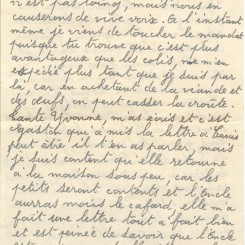 n'est pas loing, mais nous en
causerons de vive voix. A l'instant
même je viens de toucher le mandat
puisque tu trouve que c'est plus
avantageux que les colis, m'en
expédié plus tant que je suis par
là, car en achetant de la viande et
des œufs, on peut casser la croûte.
tante Yvonne, m'as écris et c'est
qu'a mis la lettre à Paris
peut être il t'en as parler, mais
je suis content qu'elle retourne
à la maison sous peu, car les
petits seront contents et l'Encle
aurras moins le cafard, elle m'a
fait une lettre tout à fait bien
et est peinée de savoir que l'Encle